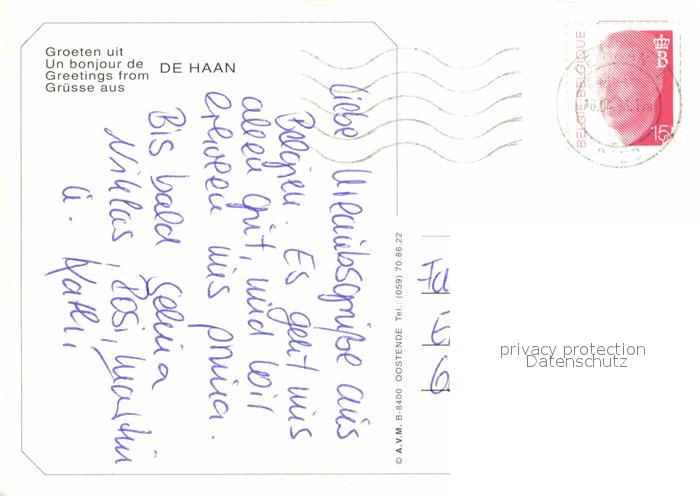 Groeten uit
Un bonjour de
Greetings from
Grüsse aus
DE HAAN
Liebe Urlaubsgrüße aus
Belgien. Es geht uns
allen gut, und wir
erholen uns prima.
Bis bald
Niklas, Rosi, Martin
u. Kathi
© A.V.M. B-8400 OOSTENDE Tel.: (059) 70.86.22
BELGIE-BELGIQUE
B
15
privacy protection
Datenschutz